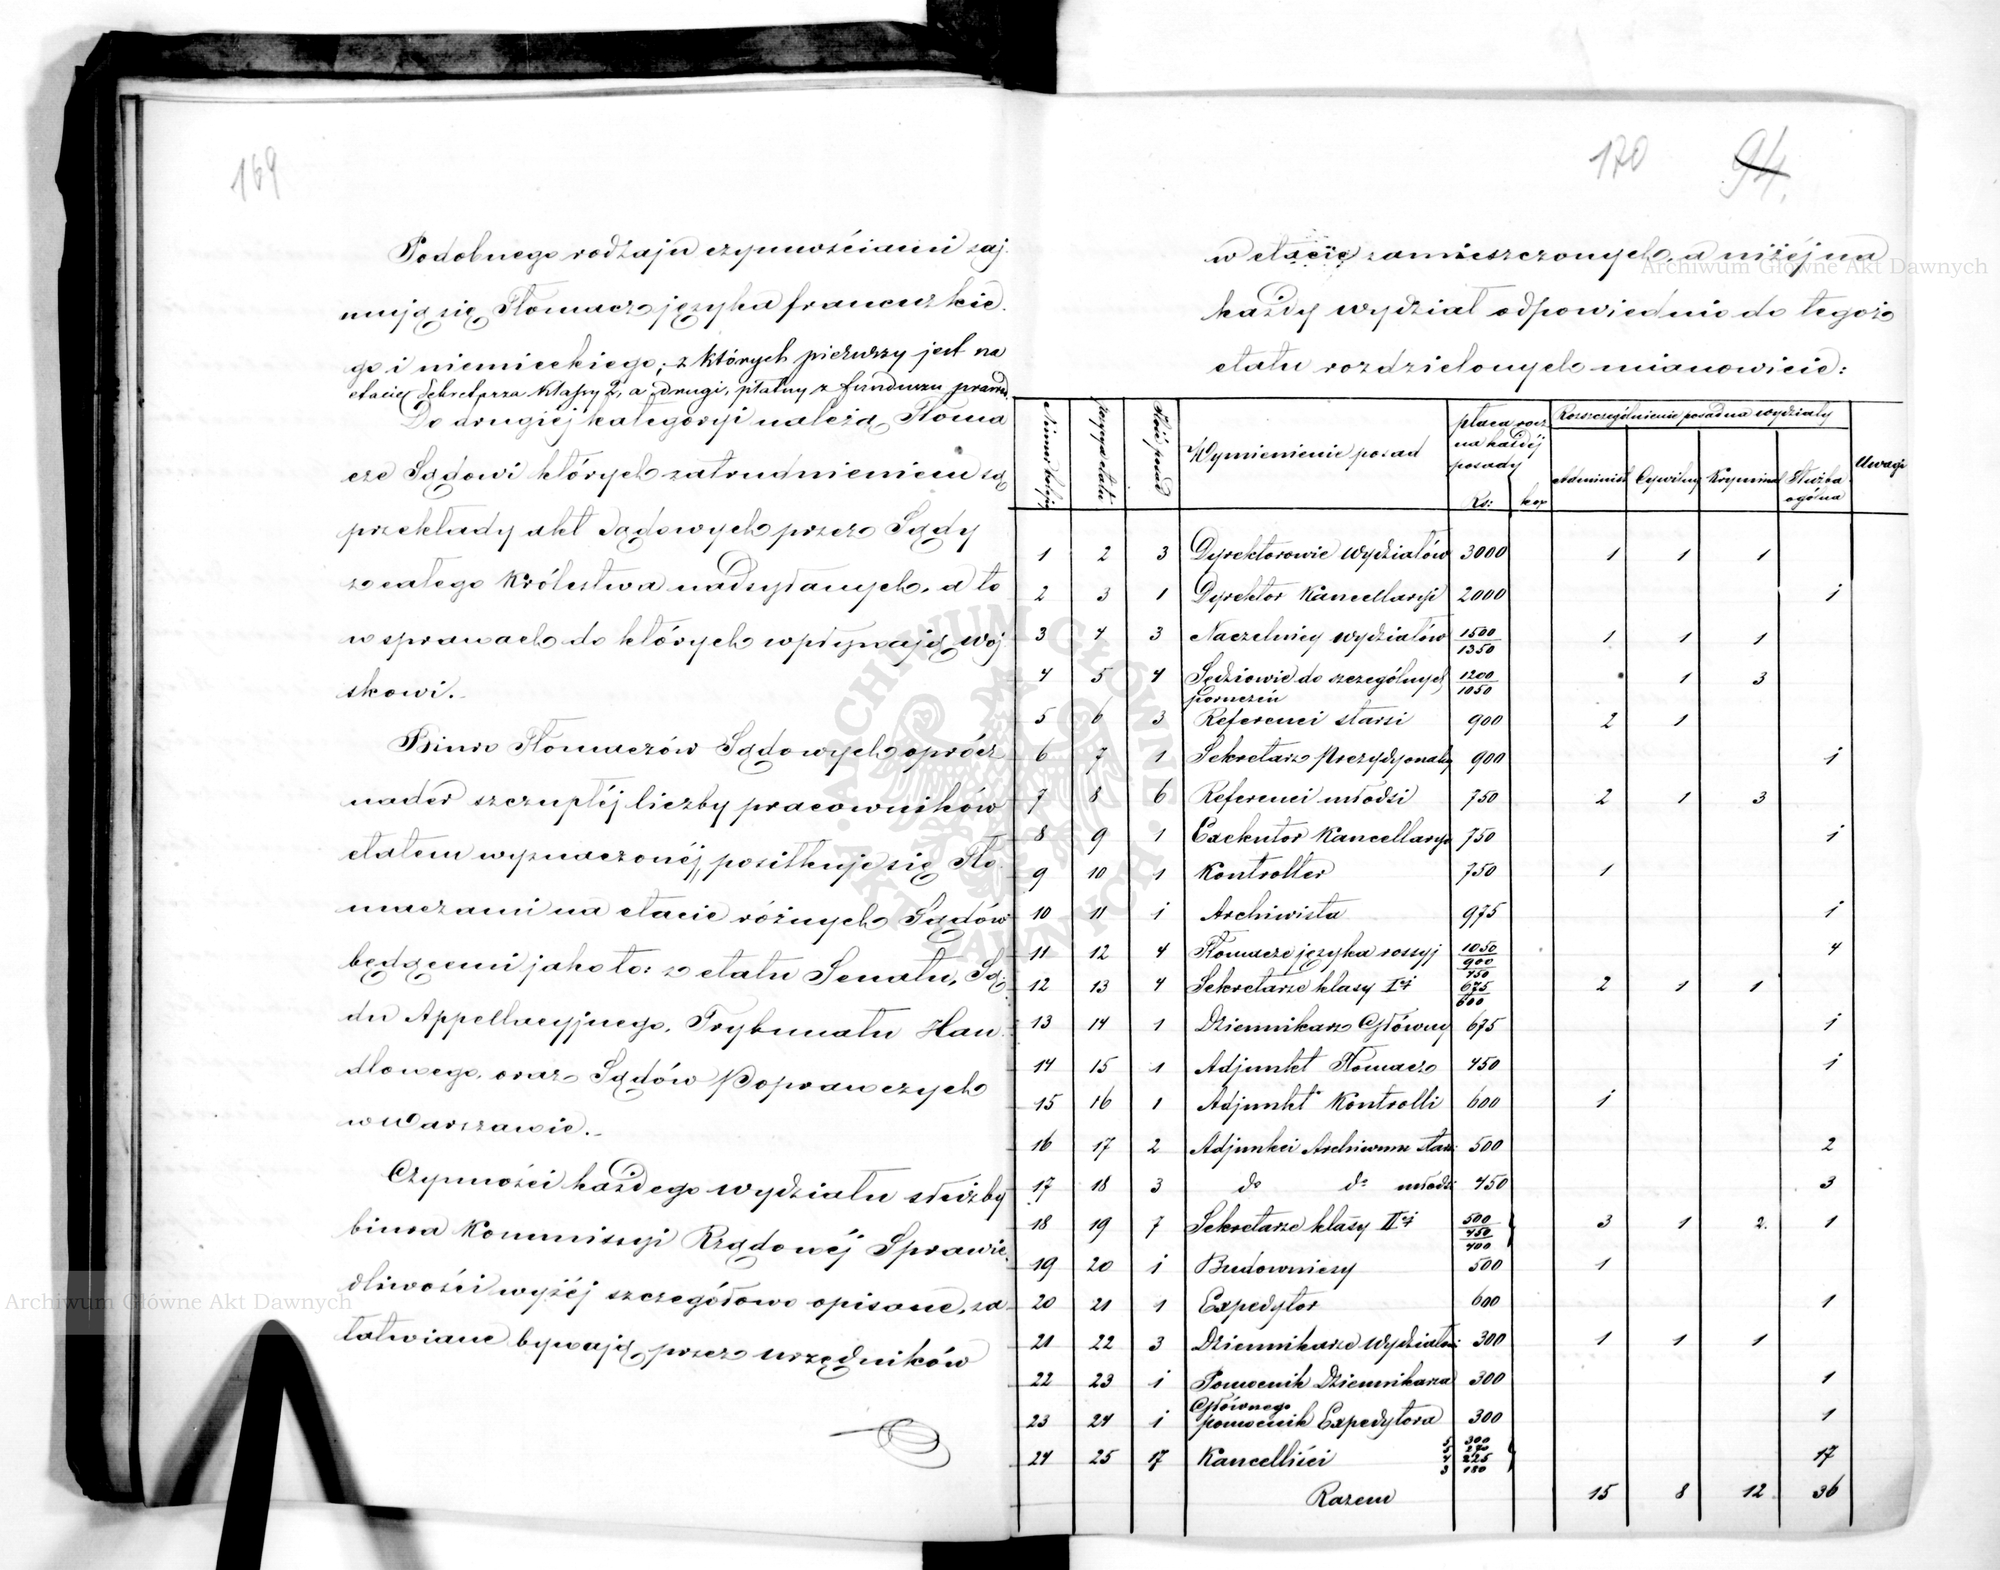 169
Podobnego rodzaju czynnościami zaj-
mują się Tłomacz języka francuzkie-
go i niemieckiego, z których pierwszy jest na
etacie Sekretarza klassy 2, a drugi, płatny z funduszu
Do drugiéj kategoryi należą Tłoma
cze Sądowi których zatrudnieniem są
przekłady akt Sądowych przez Sądy
z całego Królestwa nadsyłanych, a to
w sprawach do których wpływają woj
skowi.
Biuro Tłomaczów Sądowych oprócz
nader szczupłéj liczby pracowników
etatem wyznaczonéj, posiłkuje się Tło-
maczami na etacie różnych Sądów
będącemi jako to: z etatu Senatu, Są-
du Appellacyjnego, Trybunału Han-
dlowego, oraz Sądów Poprawczych
w Warszawie.
Czynności każdego wydziału służby
biura Kommissyi Rządowéj Sprawie-
dliwości wyżéj szczegółowo opisane, za-
łatwiane bywają przez urzędników
170 94
w etacie zamieszczonych, a niżéj na
każdy wydział odpowiednio do tegoż
etatu rozdzielonych mianowicie:
Numer kolejny | pozycya etatu | Ilość posad | Wymienienie posad | płaca rocz na każdéj posady Rs: kop | Rozszczególnienie posad na wydziały | Administ | Cywilny | Kryminal | Służba ogólna | Uwagi
1 2 3 Dyrektorowie Wydziałów 3000 1 1 1
2 3 1 Dyrektor Kancellaryi 2000 1
3 4 3 Naczelnicy wydziałów 1500 1350 1 1 1
4 5 4 Sędziowie do szczególnych poruczeń 1200 1050 1 3
5 6 3 Referenci starsi 900 2 1
6 7 1 Sekretarz Prezydyonalny 900 1
7 8 6 Referenci młodsi 750 2 1 3
8 9 1 Exekutor Kancellaryi 750 1
9 10 1 Kontroller 750 1
10 11 1 Archiwista 975 1
11 12 4 Tłomacze języka rossyj 1050 900 4
12 13 4 Sekretarze klasy Iéj 750 675 600 2 1 1
13 14 1 Dziennikarz Główny 675 1
14 15 1 Adjunkt Tłomacz 450 1
15 16 1 Adjunkt Kontrolli 600 1
16 17 2 Adjunkci Archiwum star: 500 2
17 18 3 do do młodsi 450 3
18 19 7 Sekretarze klasy IIéj 500 450 400 3 1 2. 1
19 20 1 Budowniczy 500 1
20 21 1 Expedytor 600 1
21 22 3 Dziennikarze Wydziałów 300 1 1 1
22 23 1 Pomocnik Dziennikarza Głównego 300 1
23 24 1 pomocnik Expedytora 300 1
24 25 17 Kancelliści 5 300 5 270 4 225 3 180 17
Razem 15 8 12 36
Archiwum Główne Akt Dawnych
Archiwum Główne Akt Dawnych
ARCHIWUM GŁÓWNE AKT DAWNYCH